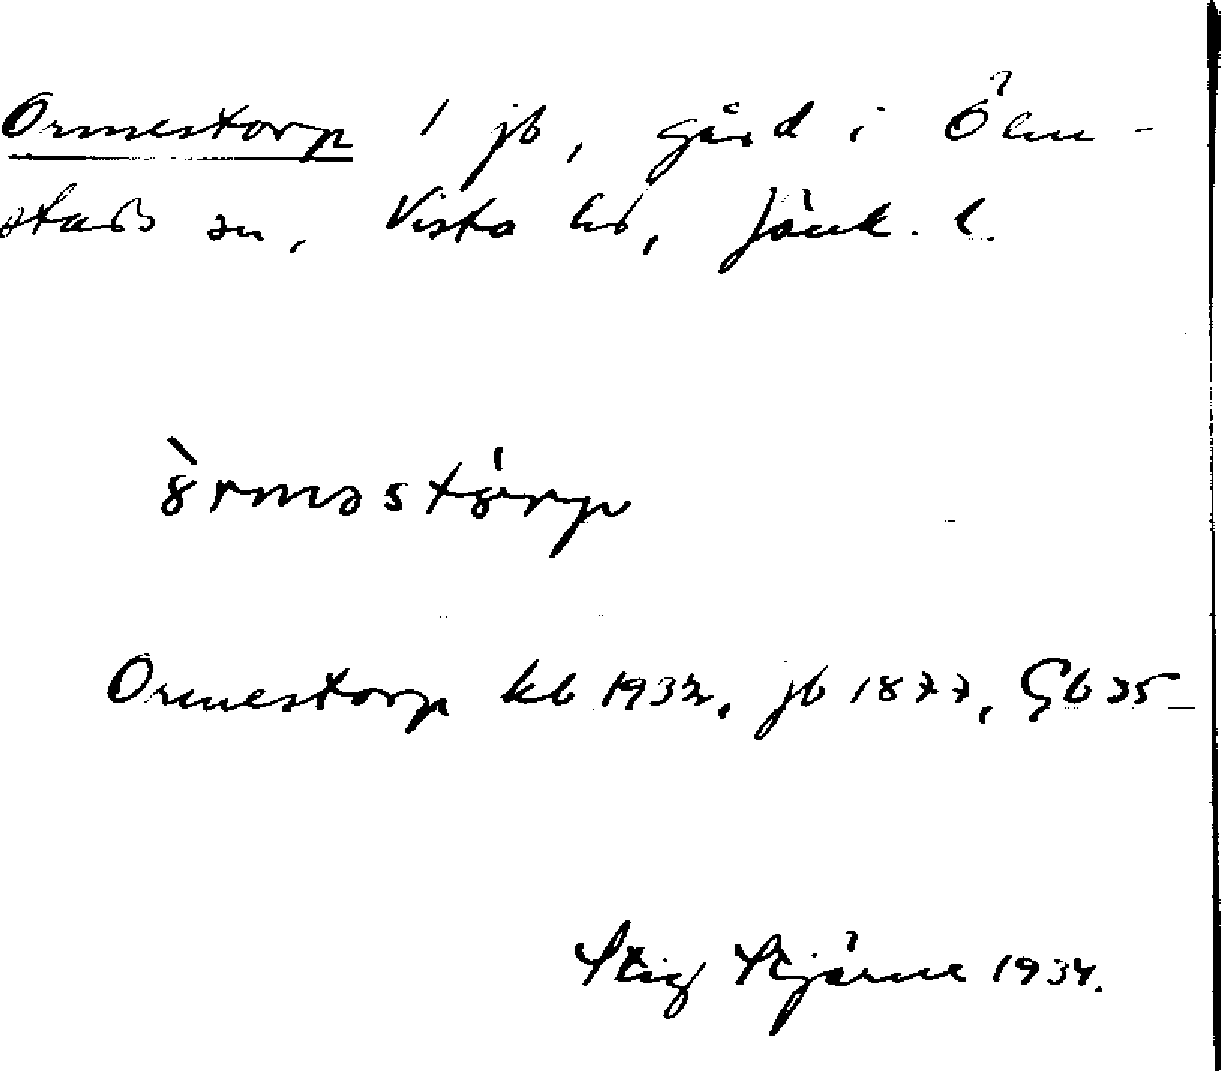 Ormestorp 1 jb, gård i Ölm-
stads sn, Vista hd, Jönk. l.
òrməstórp
Ormestorp kb 1932, jb 1877, Gb 35
Stig Stjärne 1934.